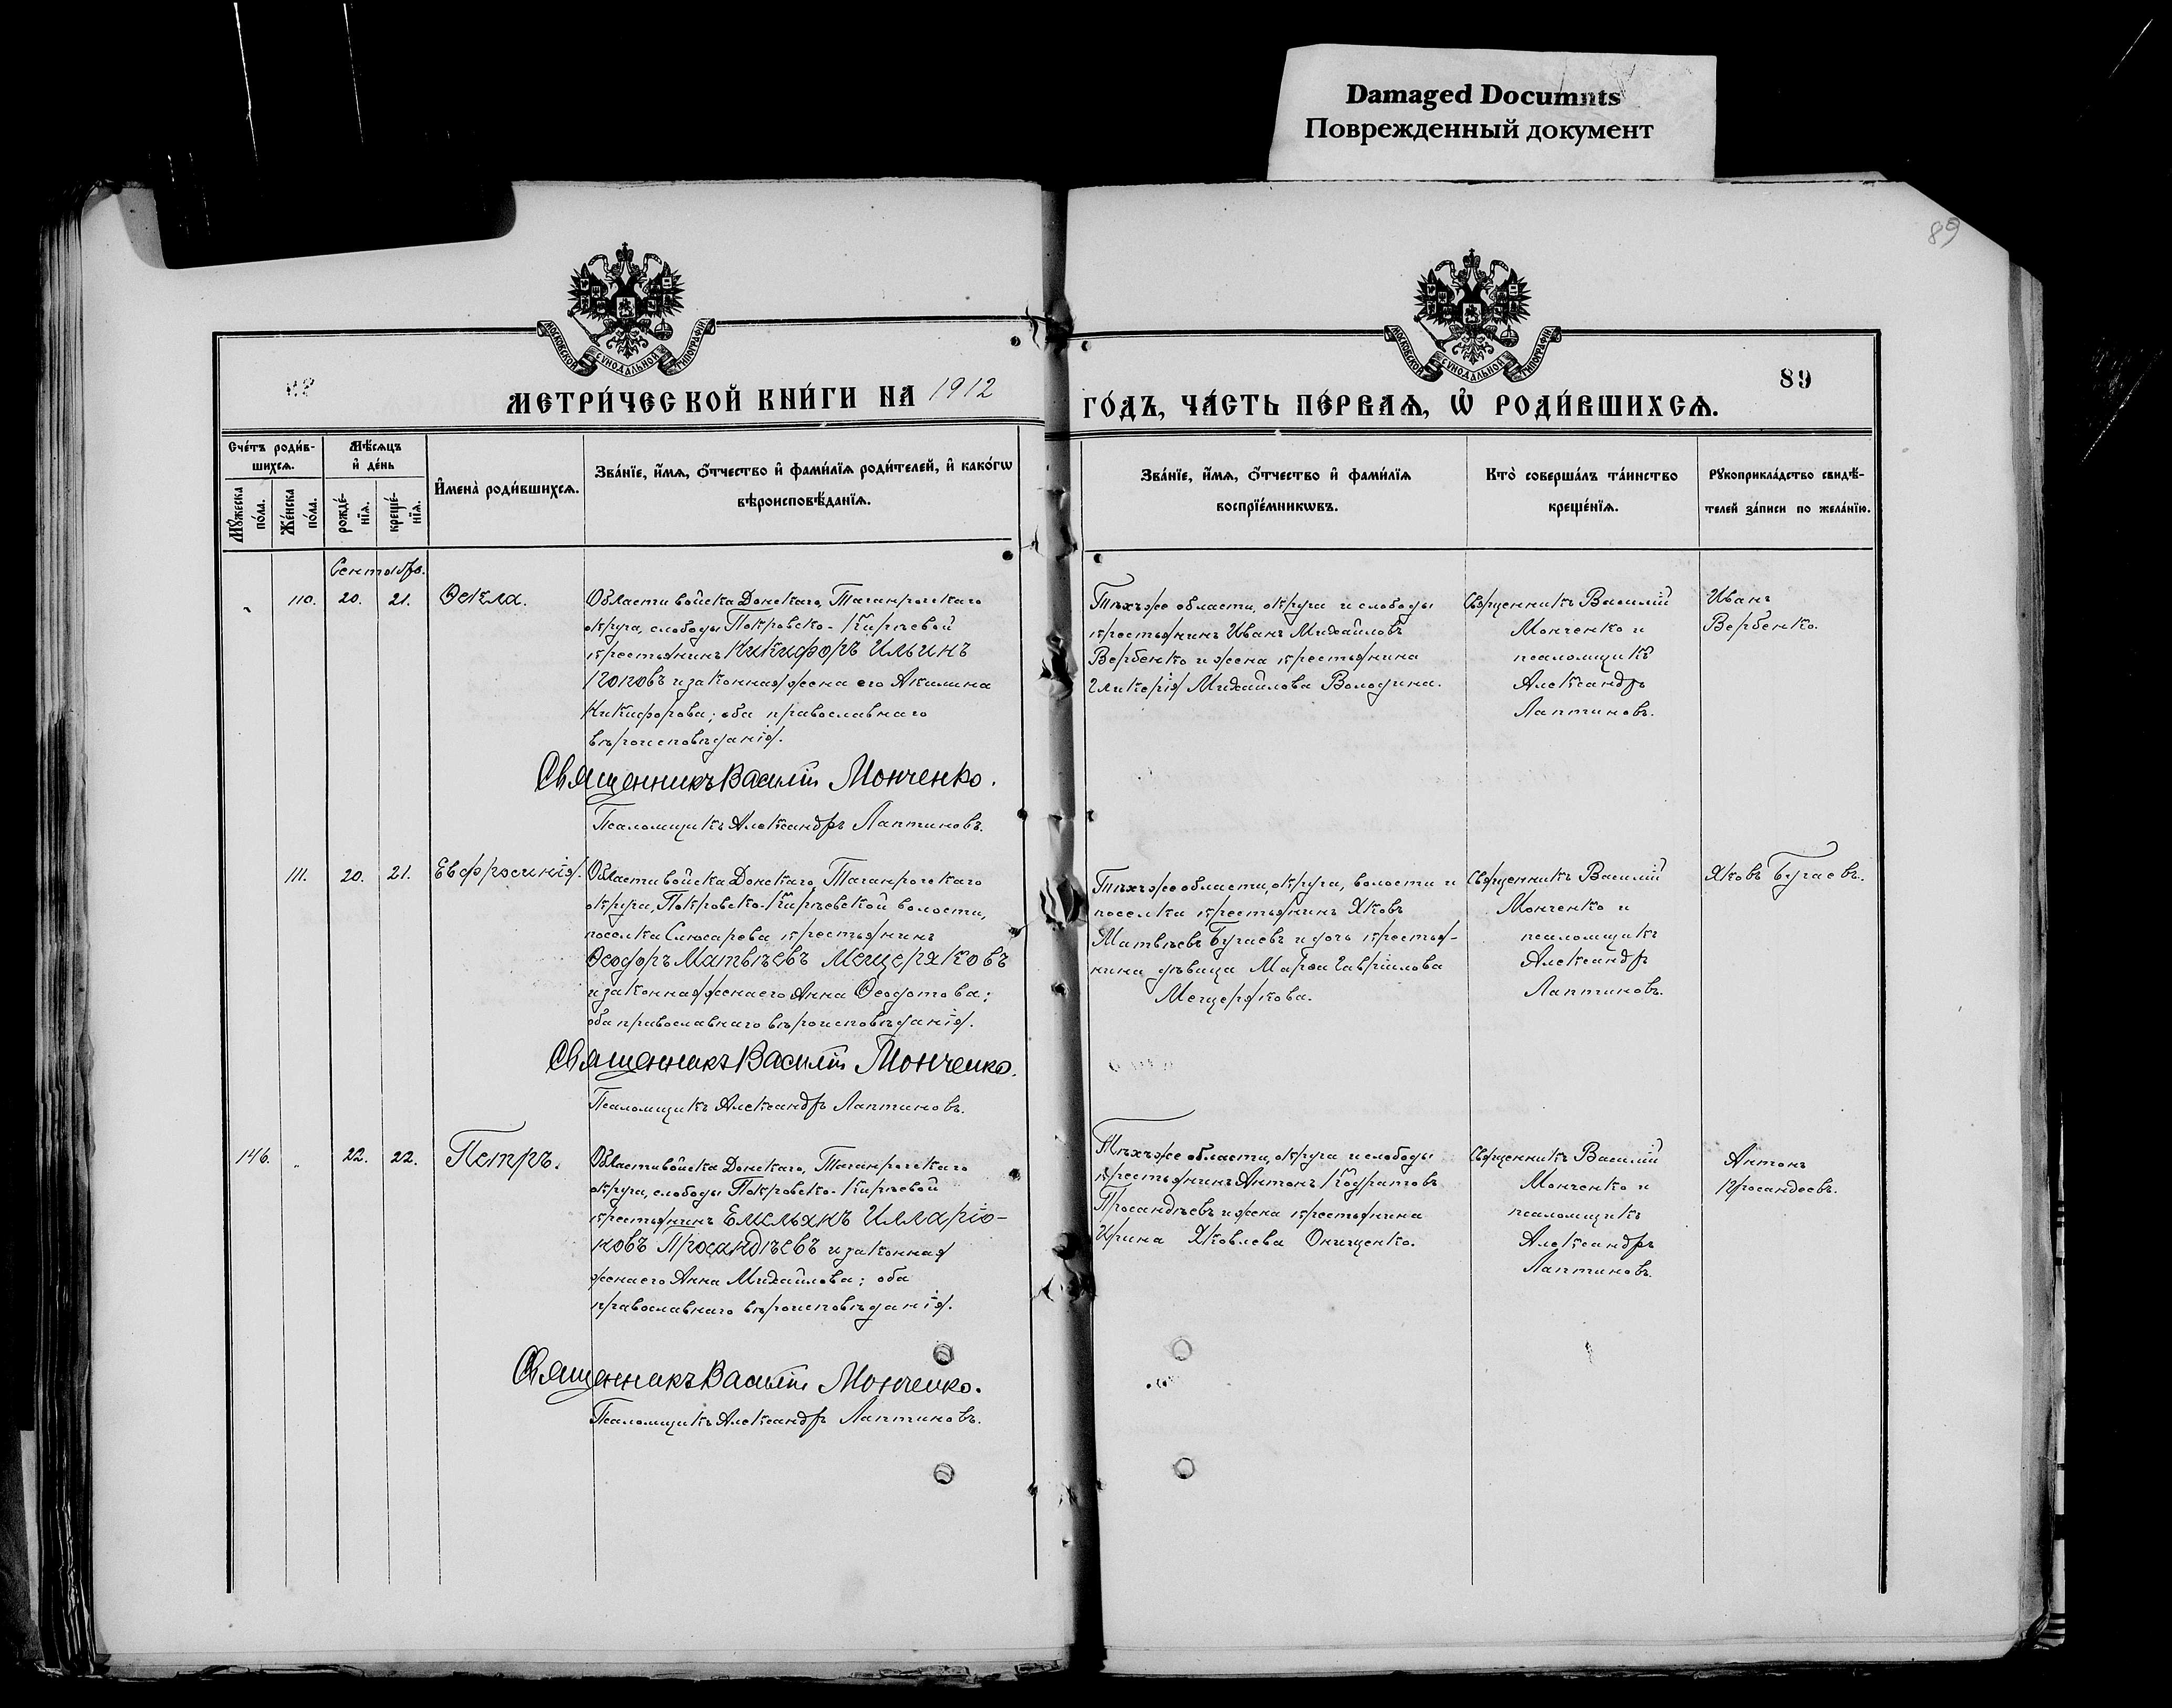 Damaged Documnts
Поврежденный документ
89
МОСКОВСКОЙ СѴНОДАЛЬНОЙ ТИПОГРАФІИ
МОСКОВСКОЙ СѴНОДАЛЬНОЙ ТИПОГРАФІИ
МЕТРИ́ЧЕСКОЙ КНИ́ГИ НА 1912
ГО́ДЪ, ЧА́СТЬ ПЕ́РВАѦ, Ѡ҆ РОДИ́ВШИХСѦ.
89
Сче́тъ роди́в-
шихсѧ.
Мѣ́сѧцъ
и҆ де́нь
Мꙋ́жеска
по́ла.
Же́нска
по́ла.
рожде́-
нїѧ.
креще́-
нїѧ.
И҆мена̀ роди́вшихсѧ.
Зва́нїе, и҆́мѧ, ѻ҆́тчество и҆ фами́лїѧ роди́телей, и҆ како́гѡ
вѣроисповѣ́данїѧ.
Зва́нїе, и҆́мѧ, ѻ҆́тчество и҆ фами́лїѧ
воспрїе́мникѡвъ.
Кто̀ соверша́лъ та́инство
креще́нїѧ.
Рꙋкоприкла́дство свидѣ́-
телей за́писи по жела́нїю.
Сентября.
110. 20. 21. Ѳекла.
Области войска Донскаго, Таганрогскаго
округа, слободы Покровско-Кирѣевой
крестьянинъ Никифоръ Ильинъ
Поповъ и законная жена его Акилина
Никифорова; оба православнаго
вѣроисповѣданія.
Священникъ Василій Мончѐнко.
Псаломщикъ Александръ Лаптиновъ.
Тѣхъ же области, округа и слободы
крестьянинъ Иванъ Михайловъ
Вербенко и жена крестьянина
Гликерія Михайлова Володина.
Священникъ Василій
Монченко и
псаломщикъ
Александръ
Лаптиновъ.
Иванъ
Вербенко.
111. 20. 21. Евфросинія.
Области войска Донскаго, Таганрогскаго
округа, Покровско-Кирѣевской волости,
поселка Слюсарева крестьянинъ
Ѳеодоръ Матвѣевъ Мещеряковъ
и законная жена его Анна Ѳеодотова;
оба православнаго вѣроисповѣданія.
Священникъ Василій Монченко.
Псаломщикъ Александръ Лаптиновъ.
Тѣхъ же области, округа, волости и
поселка крестьянинъ Яковъ
Матвѣевъ Бугаевъ и дочь крестья-
нина дѣвица Марѳа Гавріилова
Мещерякова.
Священникъ Василій
Монченко и
псаломщикъ
Александръ
Лаптиновъ.
Яковъ Бугаевъ.
146. „ 22. 22. Петръ.
Области войска Донскаго, Таганрогскаго
округа, слободы Покровско-Кирѣевой
крестьянинъ Емельянъ Илларіо-
новъ Просандѣевъ и законная
жена его Анна Михайлова; оба
православнаго вѣроисповѣданія.
Священникъ Василій Монченко.
Псаломщикъ Александръ Лаптиновъ.
Тѣхъ же области, округа и слободы
крестьянинъ Антонъ Кодратовъ
Просандѣевъ и жена крестьянина
Ирина Яковлева Онищенко.
Священникъ Василій
Монченко и
псаломщикъ
Александръ
Лаптиновъ.
Антонъ
Просандеевъ.